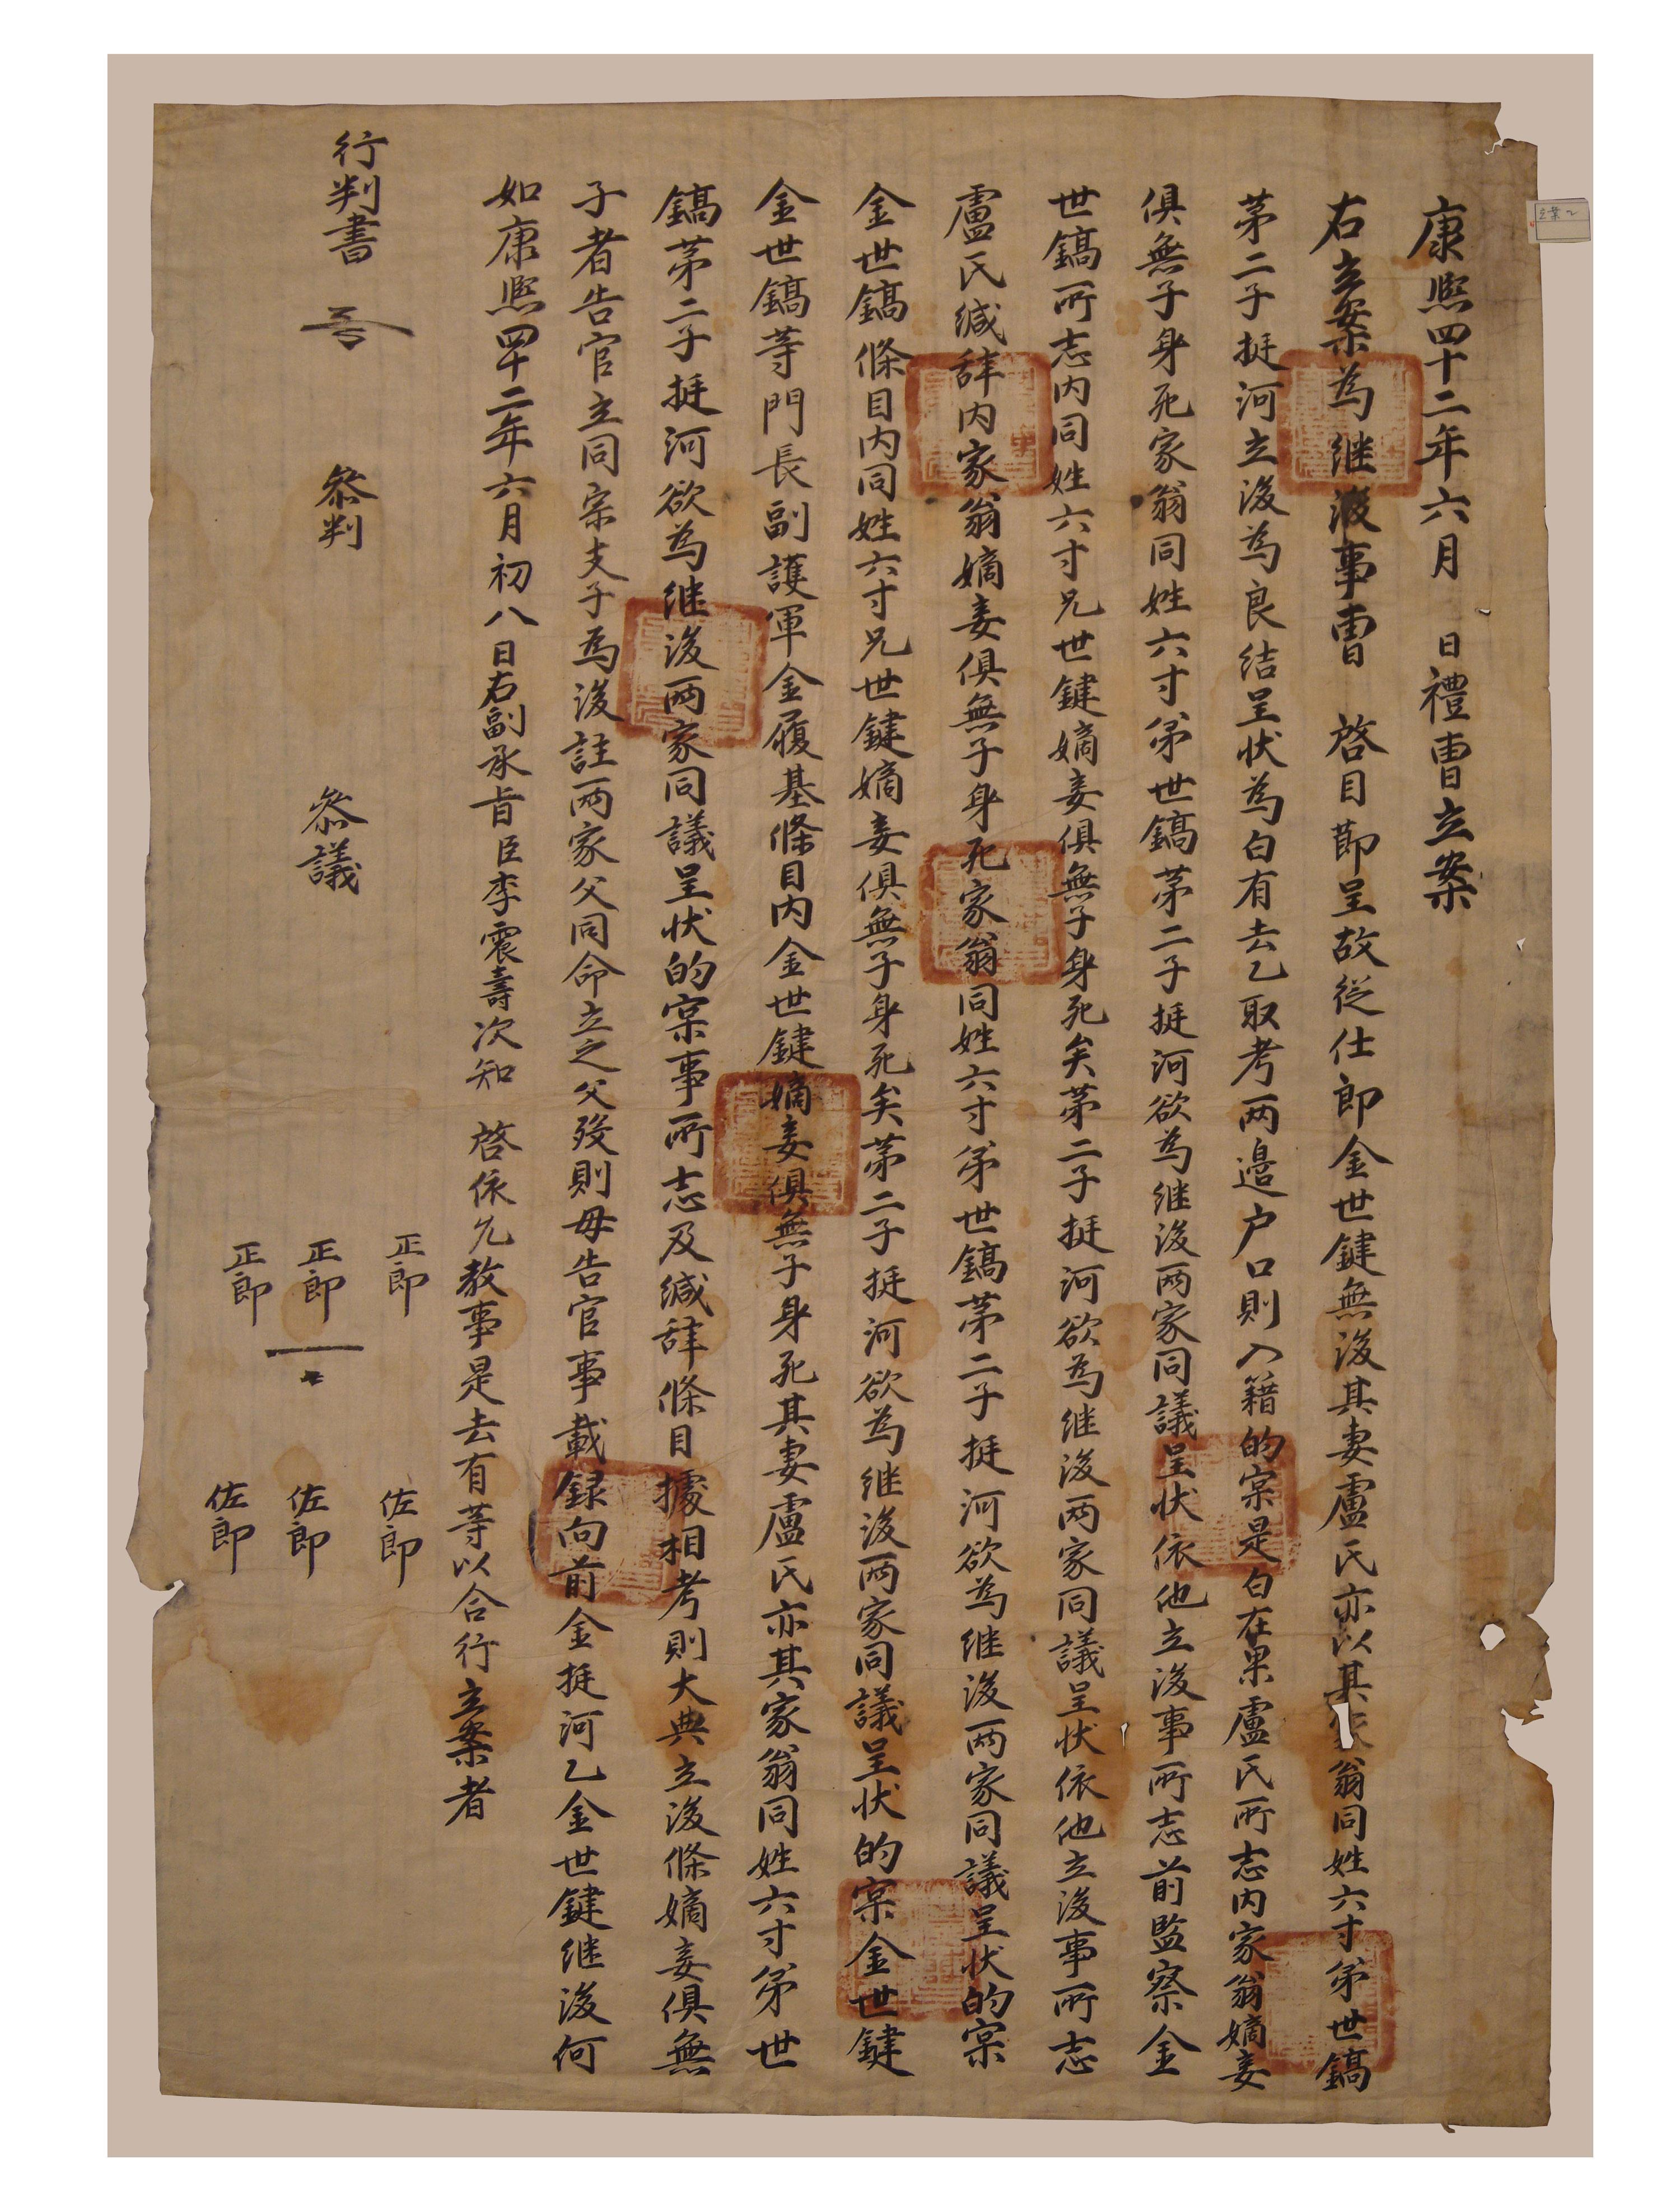 康熙四十二年六月 日禮曹立案
右立案為継後事曹 啓目節呈故從仕郎金世鍵無後其妻盧氏亦以其家翁同姓六寸弟世鎬
第二子挺河立後為良結呈状為白有去乙取考両邊户口則入籍的実是白在果盧氏所志内家翁嫡妾
俱無子身死家翁同姓六寸弟世鎬第二子挺河欲為継後両家同議呈状依他立後事所志前監察金
世鎬所志内同姓六寸兄世鍵嫡妾俱無子身死矣第二子挺河欲為継後両家同議呈状依他立後事所志
盧氏緘辞内家翁嫡妾俱無子身死家翁同姓六寸弟世鎬第二子挺河欲為継後両家同議呈状的実
金世鎬條目内同姓六寸兄世鍵嫡妾俱無子身死矣第二子挺河欲為継後両家同議呈状的実金世鍵
金世鎬等門長副護軍金履基條目内金世鍵嫡妾俱無子身死其妻盧氏亦其家翁同姓六寸弟世
鎬第二子挺河欲為継後両家同議呈状的実事所志及緘辞條目據相考則大典立後條嫡妾俱無
子者告官立同宗支子為後註両家父同命立之父歿則母告官事載録向前金挺河乙金世鍵継後何
如康熙四十二年六月初八日右副承旨臣李震壽次知 啓依允教事是去有等以合行立案者
行判書 參判 參議 正郎 佐郎
正郎 佐郎
正郎 佐郎